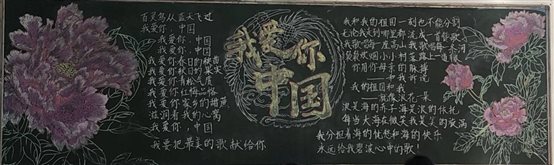 百灵鸟从蓝天飞过
我爱你，中国
我爱你，中国
我爱你，中国
我爱你春日的
我爱你秋日的
我爱你青松气质
我爱你红梅品格
我爱你家乡的甜蔗
滋润着我的心窝
我爱你，中国
我要把最美的歌献给你
我爱你
中国
我和我的祖国一刻也不能分割
无论我走到哪里都流出一首赞歌
我歌唱每一座高山我歌唱每一条河
袅袅炊烟小小村落路上一道辙
你用你那母亲的脉搏
和我诉说
我的祖国和我
像海和浪花一朵
浪是海的赤子海是浪的依托
每当大海在微笑我是笑的漩涡
我分担着海的忧愁和海的快乐
永远给我碧浪心中的歌